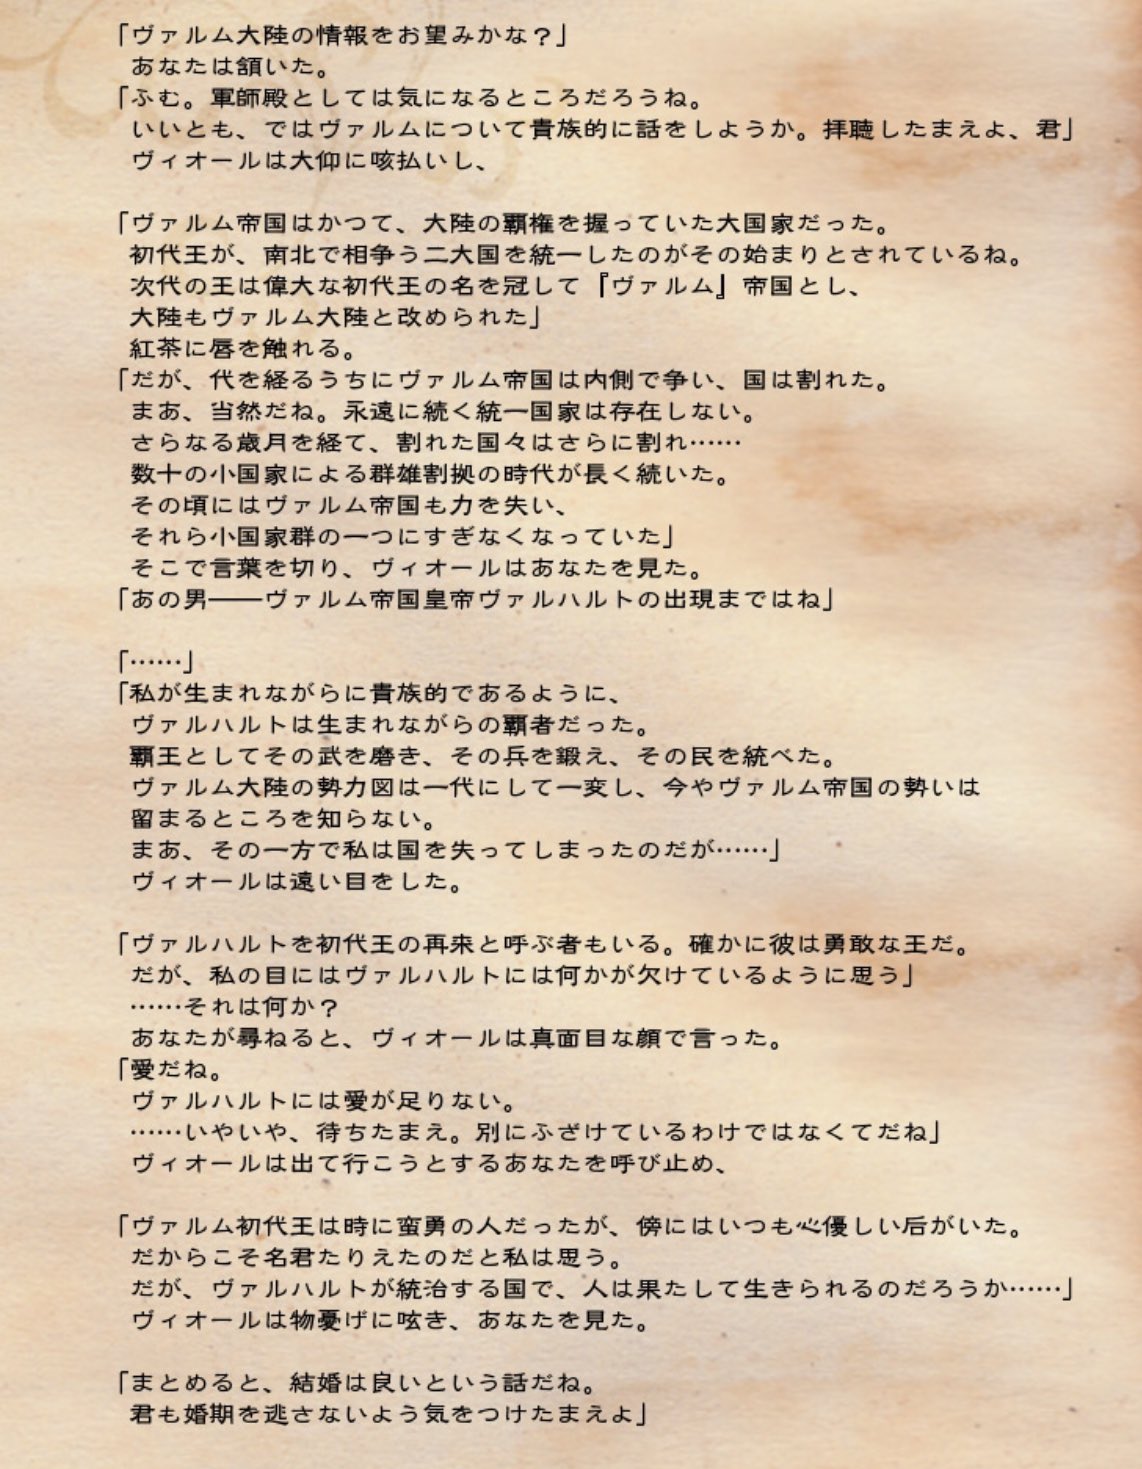 「ヴァルム大陸の情報をお望みかな？」
あなたは頷いた。
「ふむ。軍師殿としては気になるところだろうね。
いいとも、ではヴァルムについて貴族的に話をしようか。拝聴したまえよ、君」
ヴィオールは大仰に咳払いし、
「ヴァルム帝国はかつて、大陸の覇権を握っていた大国家だった。
初代王が、南北で相争う二大国を統一したのがその始まりとされているね。
次代の王は偉大な初代王の名を冠して『ヴァルム』帝国とし、
大陸もヴァルム大陸と改められた」
紅茶に唇を触れる。
「だが、代を経るうちにヴァルム帝国は内側で争い、国は割れた。
まあ、当然だね。永遠に続く統一国家は存在しない。
さらなる歳月を経て、割れた国々はさらに割れ……
数十の小国家による群雄割拠の時代が長く続いた。
その頃にはヴァルム帝国も力を失い、
それら小国家群の一つにすぎなくなっていた」
そこで言葉を切り、ヴィオールはあなたを見た。
「あの男――ヴァルム帝国皇帝ヴァルハルトの出現まではね」
「……」
「私が生まれながらに貴族的であるように、
ヴァルハルトは生まれながらの覇者だった。
覇王としてその武を磨き、その兵を鍛え、その民を統べた。
ヴァルム大陸の勢力図は一代にして一変し、今やヴァルム帝国の勢いは
留まるところを知らない。
まあ、その一方で私は国を失ってしまったのだが……」
ヴィオールは遠い目をした。
「ヴァルハルトを初代王の再来と呼ぶ者もいる。確かに彼は勇敢な王だ。
だが、私の目にはヴァルハルトには何かが欠けているように思う」
……それは何か？
あなたが尋ねると、ヴィオールは真面目な顔で言った。
「愛だね。
ヴァルハルトには愛が足りない。
……いやいや、待ちたまえ。別にふざけているわけではなくてだね」
ヴィオールは出て行こうとするあなたを呼び止め、
「ヴァルム初代王は時に蛮勇の人だったが、傍にはいつも心優しい后がいた。
だからこそ名君たりえたのだと私は思う。
だが、ヴァルハルトが統治する国で、人は果たして生きられるのだろうか……」
ヴィオールは物憂げに呟き、あなたを見た。
「まとめると、結婚は良いという話だね。
君も婚期を逃さないよう気をつけたまえよ」